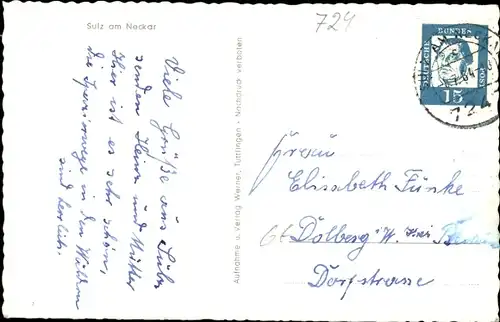 Sulz am Neckar
724
Viele Grüße aus Sulz
senden Heinz und Mutter
Hier ist es sehr schön,
die Spazierwege in den Wäldern
sind herrlich.
Aufnahme u. Verlag Werner, Tuttlingen - Nachdruck verboten
DEUTSCHE
BUNDES
POST
15
724
Frau
Elisabeth Funke
Dolberg i. W.
Dorfstrasse